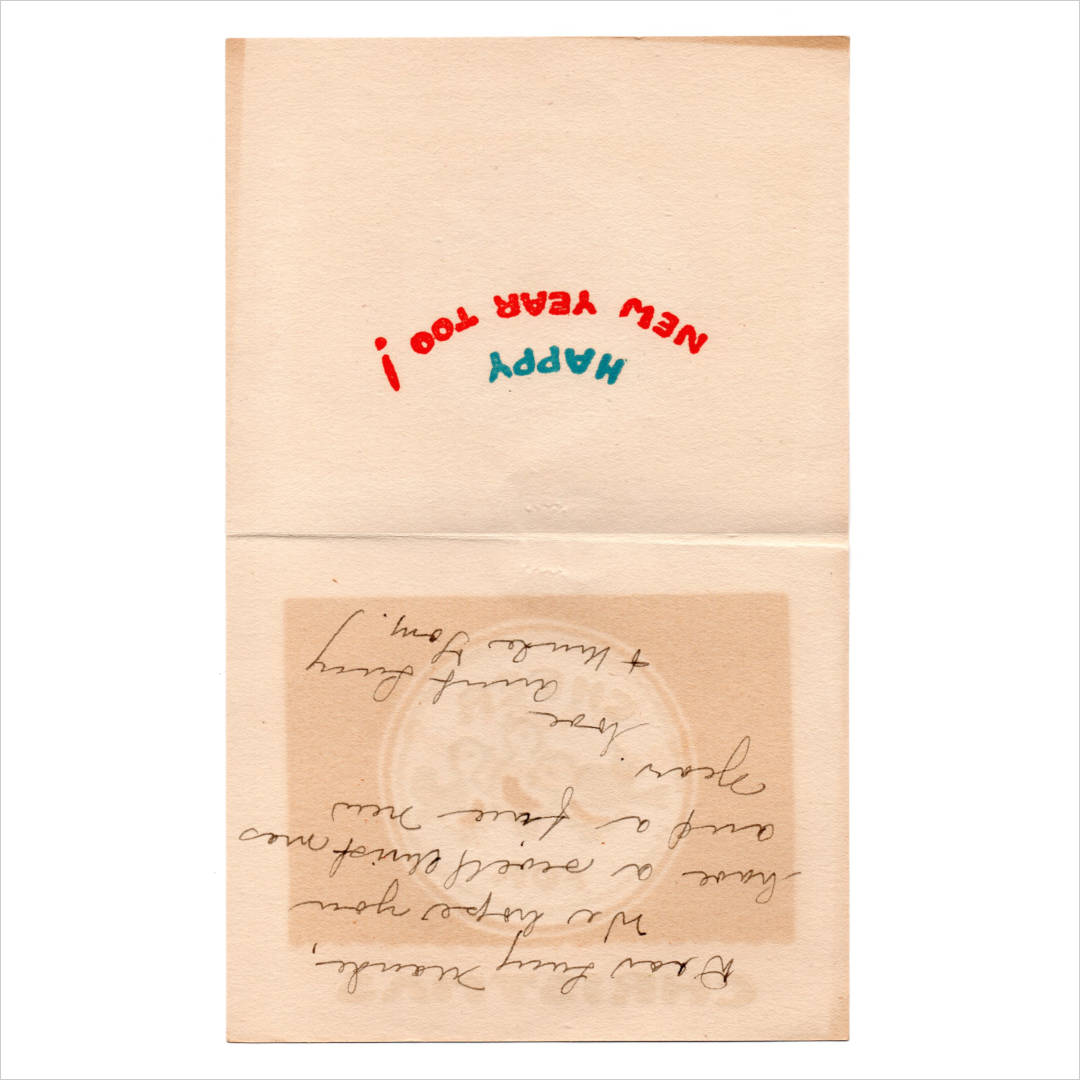 Dear Lucy Maude,
We hope you
have a swell Christmas
and a fine new
year.
Love
Aunt Lucy
+ Uncle Tom.
HAPPY
NEW YEAR TOO!